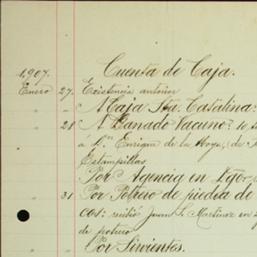 Cuenta de Caja.
1,907.
Enero 27. Existencia anterior
A Caja Sta. Catalina:
" 28 A Ganado Vacuno: 10
á Dn. Enrique de la Hoya, de
Estampillas
Por Agencia en
" 31 Por Potrero de piedra de
Cos: recibió Juan Martinez en
de potrero
Por Sirvientes.